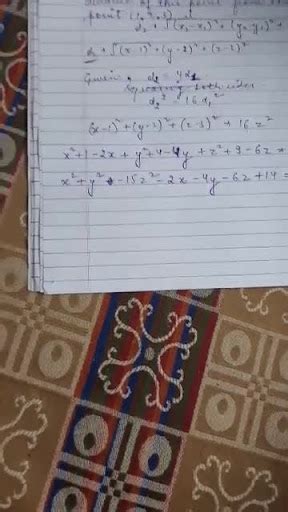 distance of this point from the
point (1, 2, 3) is
d₂ = √(x₂-x₁)² + (y₂-y₁)² +
d₂ = √(x-1)² + (y-2)² + (z-3)²
Given, d₂ = 4d₁
Squaring both sides
d₂² = 16d₁²
(x-1)² + (y-2)² + (z-3)² = 16z²
x²+1-2x + y²+4-4y + z²+9-6z =
x² + y² - 15z² - 2x - 4y - 6z + 14 =